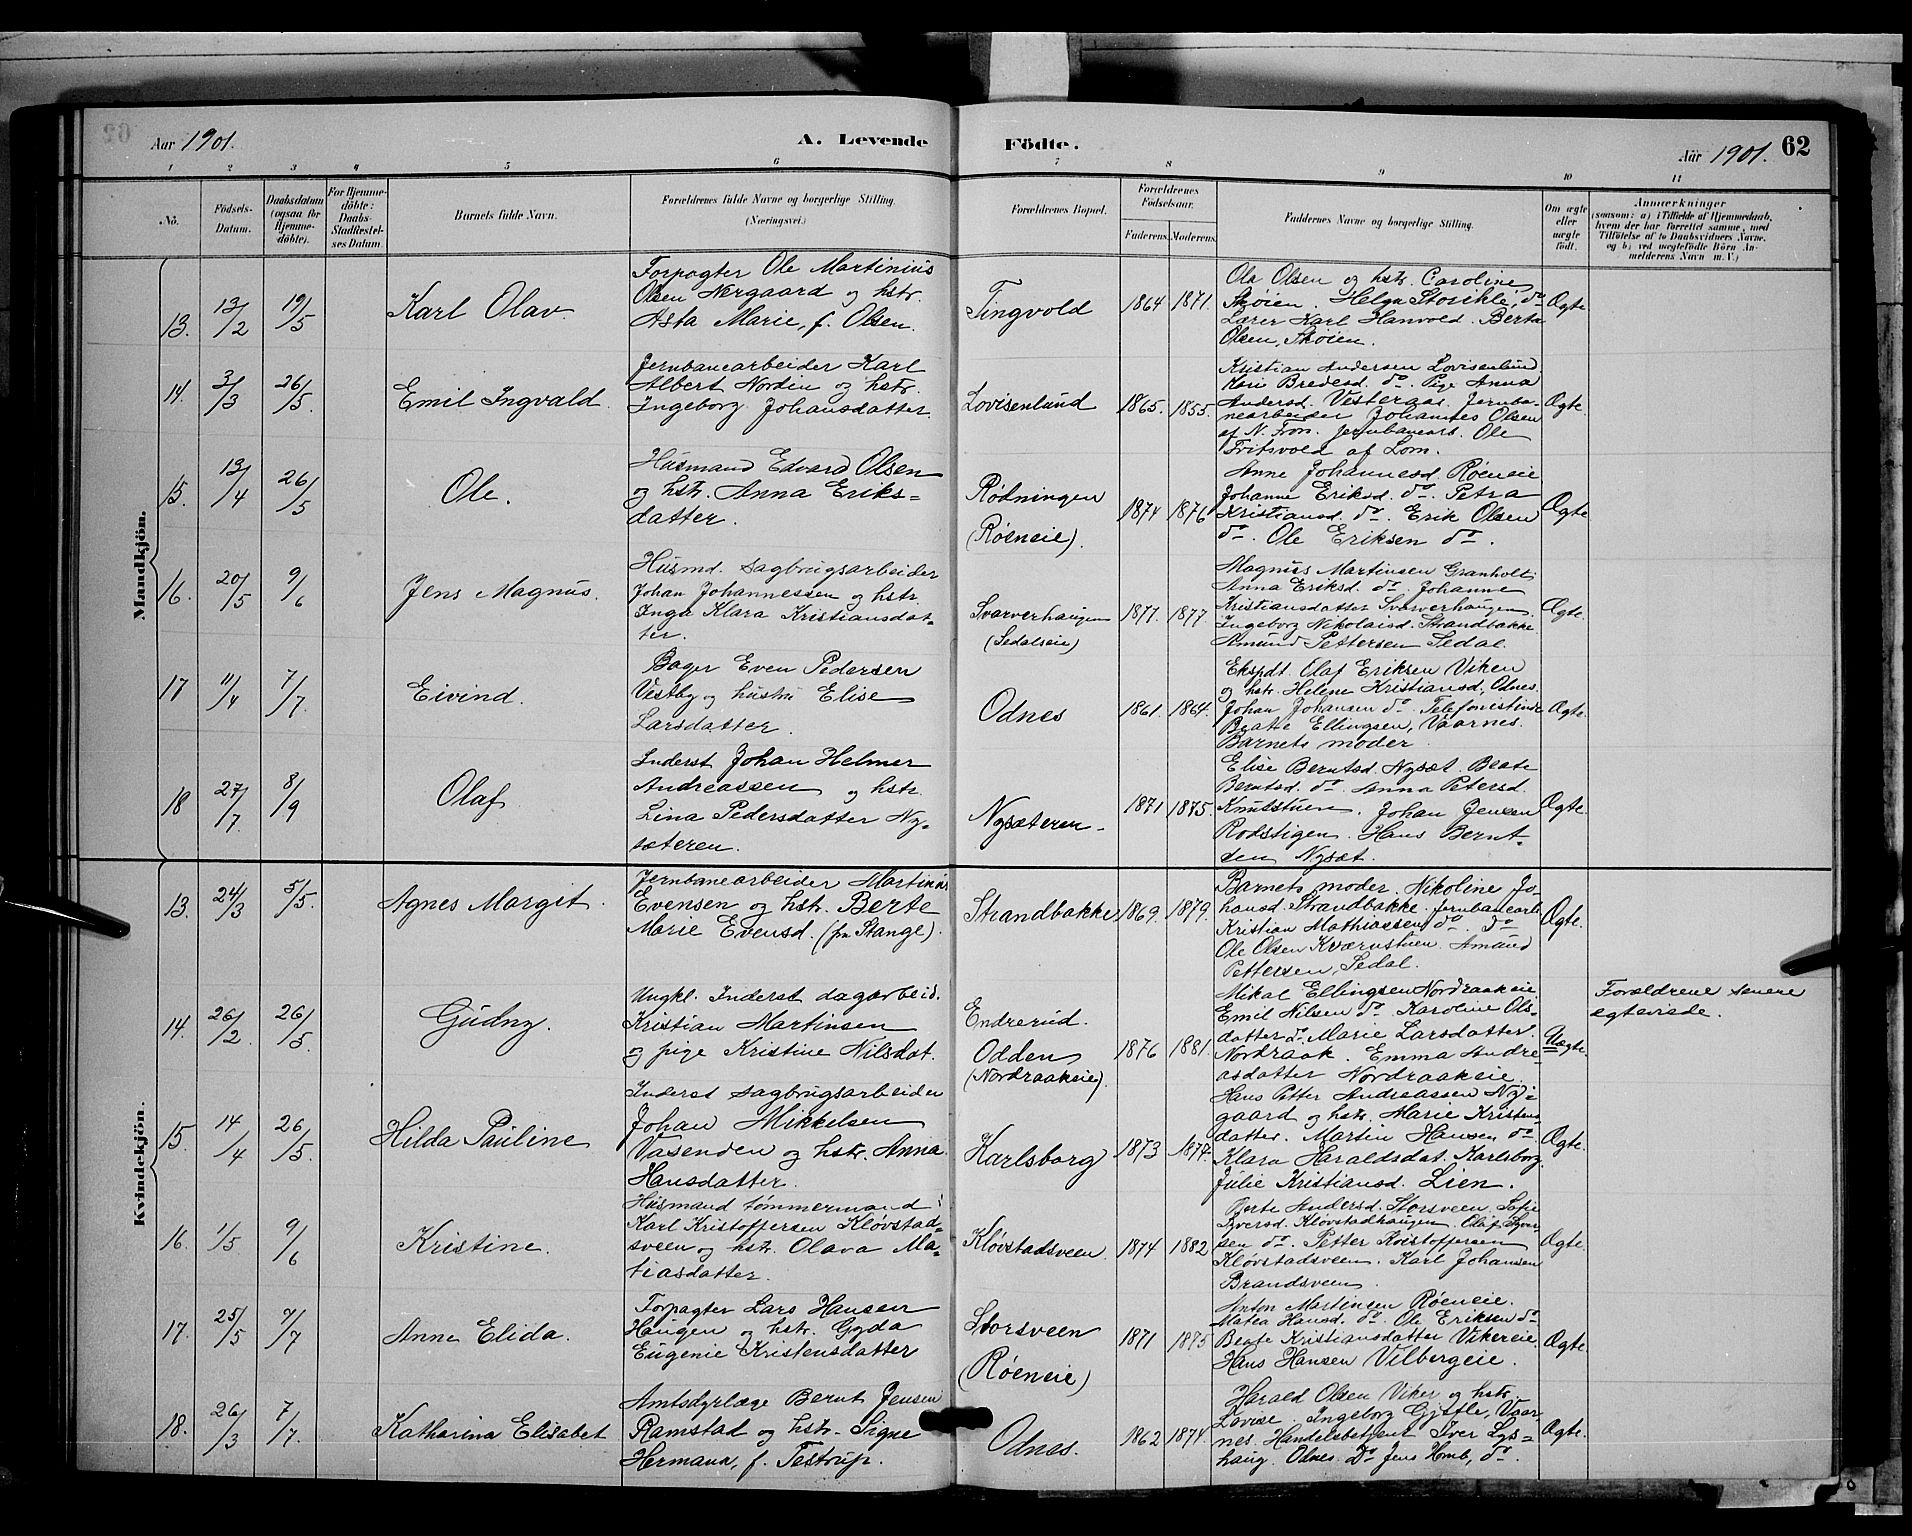 Aar 1901.
A. Levende
Födte.
Aar 1901.
62
1 2 3 4 5 6 7 8 9 10 11
No.
Födsels-
Datum.
Daabsdatum
(ogsaa for
Hjemme-
döbte).
For Hjemme-
döbte:
Daabs-
Stadfæstel-
ses Datum.
Barnets fulde Navn.
Forældrenes fulde Navne og borgerlige Stilling.
(Næringsvei.)
Forældrenes Bopæl.
Forældrenes
Födselsaar.
Faderens.
Moderens.
Faddernes Navne og borgerlige Stilling.
Om ægte
eller
uægte
födt.
Anmærkninger
(saasom: a) i Tilfælde af Hjemmedaab,
hvem der har forrettet samme, med
Tilföielse af to Daabsvidners Navne,
og b) ved uægtefödte Börn An-
melderens Navn m. V.)
Mandkjön.
13.
13/2
19/5
Karl Olav.
Forpagter Ole Martinius
Olsen Nørgaard og hstr.
Asta Marie, f. Olsen.
Tingvold
1864
1871.
Ola Olsen og hstr. Caroline
Skøien. Helga do
Lærer Karl Hanvold. Berta
Olsen, Skøien.
Ægte
14.
3/3
26/5.
Emil Ingvald.
Jernbanearbeider Karl
Albert Nordin og hstr.
Ingeborg Johansdatter.
Lovisenlund
1865.
1855.
Kristian Andersen Lovisenlund.
Kari Bredesd. do. Pige Anna
Andersd. Vesteraas. Jernba-
nearbeider Johannes Olsen
af N. Fron. Jernbanearb. Ole
af Lom.
Ægte.
15.
13/4
26/5
Ole.
Husmand Edvard Olsen
og hstr. Anna Eriks-
datter.
Rødningen
(Røeneie).
1874
1876
Anne Johannesd. Røeneie
Johanne Eriksd. do. Petra
Kristiansd. do. Erik Olsen
do. Ole Eriksen do.
Ægte
16.
20/5
9/6
Jens Magnus.
Husmd. sagbrugsarbeider
Johan Johannessen og hstr.
Inga Klara Kristiansdat-
ter.
Svarverhaugen
(Sedalseie)
1877.
1877.
Magnus Martinsen Granholt.
Anna Eriksd. do. Johanne
Kristiansdatter Svarverhaugen.
Ingeborg Nikolaisd. Strandbakke
Amund Pettersen Sedal.
Ægte.
17
11/4
7/7.
Eivind.
Bager Even Pedersen
Vestby og hustru Elise
Larsdatter.
Odnes
1861.
1864.
Ekspdt. Olaf Eriksen Viken
og hstr. Helene Kristiansd, Odnes.
Johan Johansen do. Telefonistinde
Beate Ellingsen, Vaarnes.
Barnets moder.
Ægte.
18
27/7
8/9
Olaf.
Inderst Johan Helmer
Andreassen og hstr.
Lina Pedersdatter Ny-
sæteren.
Nysæteren
1871
1875.
Elise Berntsd. Nysæt. Beate
Berntsd. do Anna Petersd.
Knutstuen. Johan Jensen
Rodstigen. Hans Bernt-
sen Nysæt.
Ægte.
Kvindekjön.
13.
24/3
5/5.
Agnes Margit.
Jernbanearbeider Martinus
Evensen og hstr. Berte
Marie Evensd. (fra Stange).
Strandbakke
1869.
1879.
Barnets moder. Nikoline Jo-
hansd. Strandbakke. Jernbanearb.
Kristian Mathiassen do. do
Ole Olsen Kværnstuen. Amund
Pettersen, Sedal.
Ægte.
14.
26/2
26/5.
Gudny.
Ungkl. Inderst dagarbeid.
Kristian Martinsen
og pige Kristine Nilsdat.
Endrerud.
Odden
(Nordraakeie).
1876
1881.
Mikal Ellingsen Nordraakeie
Emil Nilsen do. Karoline Ols-
datter do. Marie Larsdatter.
Nordraak. Emma Andre-
asdatter Nordraakeie.
Uægte.
Forældrene senere
egteviede.
15.
14/4
26/5.
Hilda Pauline
Inderst sagbrugsarbeider
Johan Mikkelsen
Vasenden og hstr. Anna
Hansdatter.
Karlsborg
1873
1874.
Hans Petter Andreassen Ny-
gaard og hstr. Marie Kristens
datter. Martin Hansen do.
Klara Haraldsdat. Karlsborg.
Julie Kristiansd. Lien.
Ægte.
16.
1/5
9/6
Kristine.
Husmand tømmermand
Karl Kristoffersen Kløvstad-
sveen og hstr. Olava Ma-
tiasdatter.
Kløvstadsveen
1874
1882
Berte Andersd. Storsveen. Sofie
Syversd. Kløvstadhaugen. Olaf Syver-
sen do. Petter Kristoffersen
Kløvstadsveen. Karl Johansen
Brandsveen.
Ægte.
17.
25/5
7/7
Anne Elida.
Forpagter Lars Hansen
Haugen og hstr. Gyda
Eugenie Kristensdatter
Storsveen
(Røeneie)
1871
1875
Anton Martinsen Røeneie.
Matea Hansd. do. Ole Eriksen do
Beate Kristiansdatter Vikereie.
Hans Hansen Vilbergeie.
Ægte.
18.
26/3
7/7.
Katharina Elisabet
Amtsdyrlæge Bernt Jensen
Ramstad og hstr. Signe
Hermana, f. Testrup.
Odnes.
1862
1874.
Harald Olsen Viker og hstr.
Lovise. Ingeborg Gjstle, Vaar-
nes. Handelsbetjent Iver Lys-
haug. Odnes. Do Jens Homb, do.
Ægte.